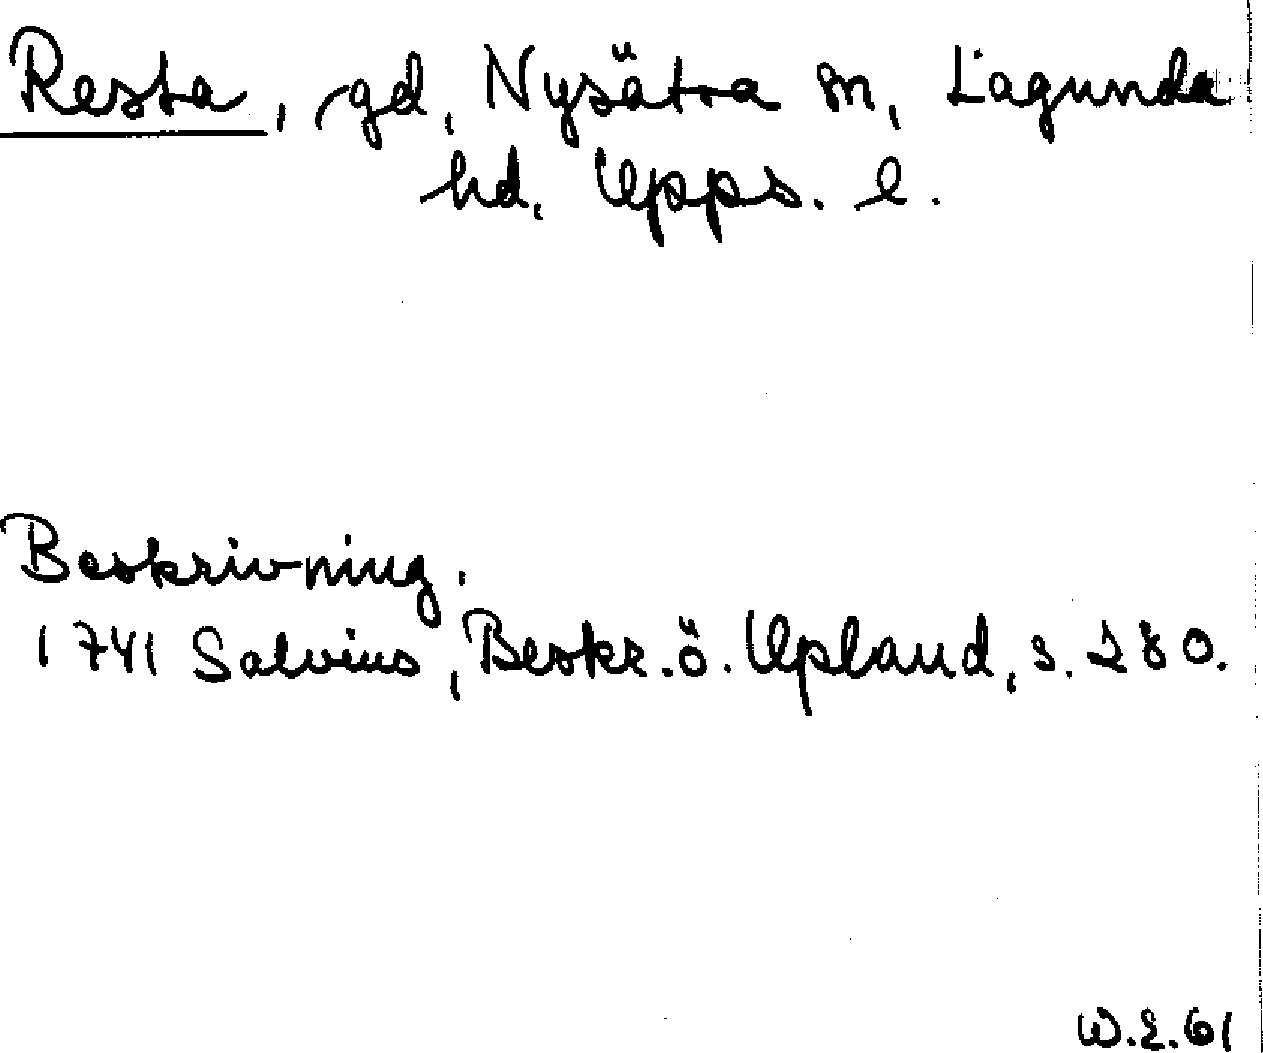 Resta, gd, Nysätra sn, Lagunda
hd. Upps. l.
Beskrivning.
1741 Salvius, Beskr. ö. Upland, s. 280.
W.E.61